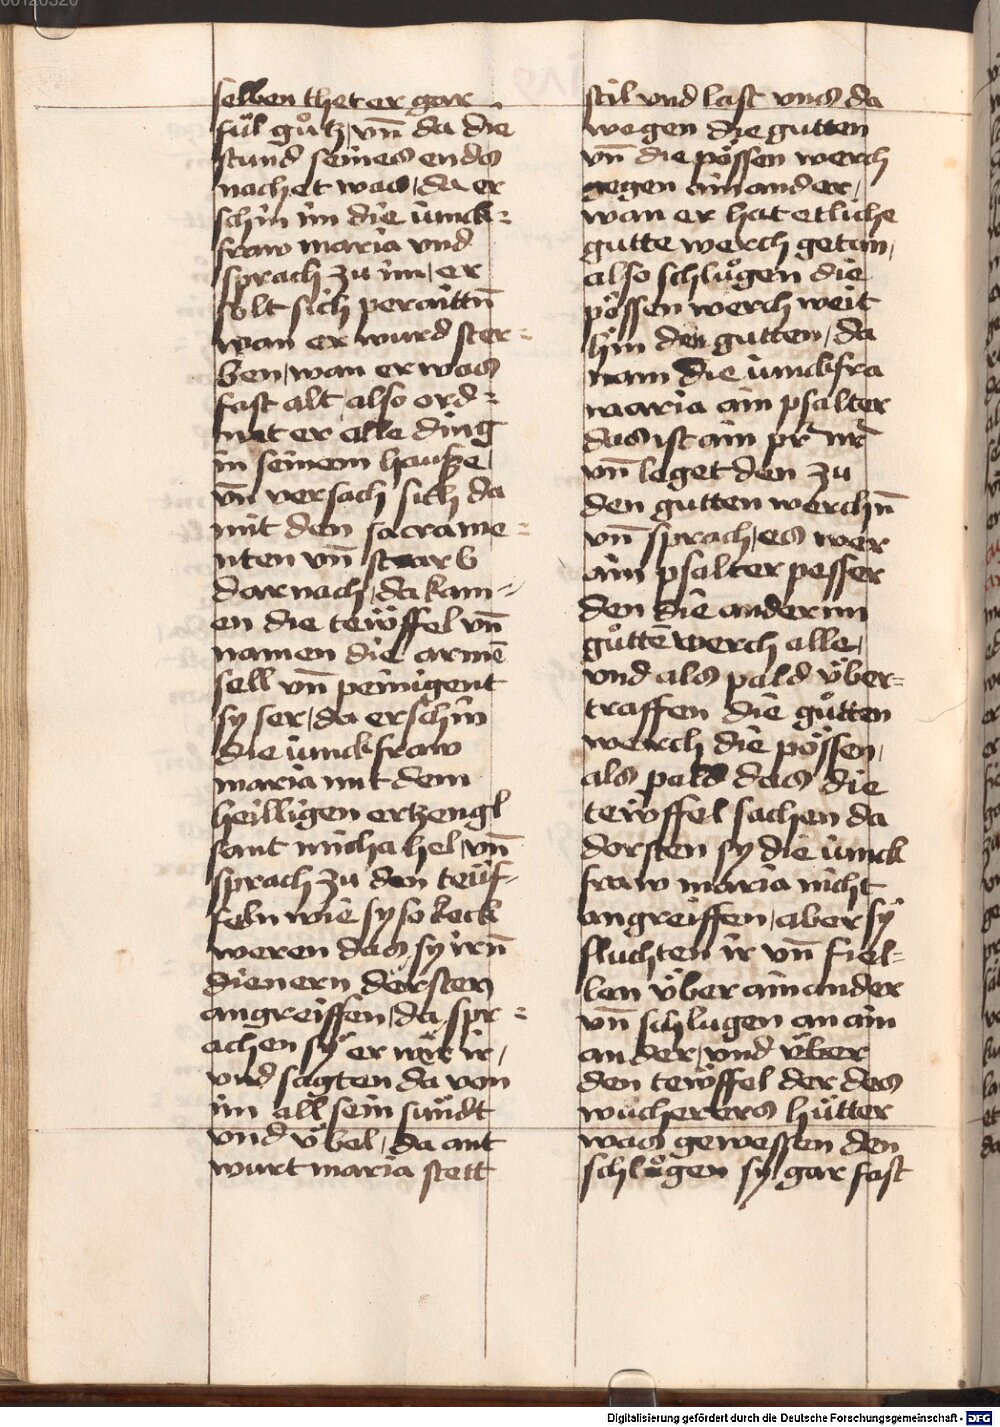 selben thet er gar
fül gůtz / vn̄ da die
stund seines ends
nachet was / da er
schin im die iunck=
fraw maria vnd
sprach zu im / er
solt sich peraittn̄
wan er wurd ster=
ben / wan er was
fast alt / also ord=
nat er alle ding
in seinem hauße /
vn̄ versach sich da
mit den sacrame=
nten vn̄ starb
dar nach / da kam=
en die tewffel vn̄
namen die armē
sell vn̄ peinigent
sy ser / da erschin
die iunckfraw
maria mit dem
heilligen ertzengl
sant michahel / vn̄
sprach zu den teüf=
feln wie sy so keck
weren das sy irn̄
dienern dorsten
angreiffen / da spr=
achen sÿ er wär ir /
vnd sagten da von
im all sein sündt
vnd v̈bel / da ant
wurt maria stett
stil vnd last vns da
wegen die gutten
vn̄ die pössen werch
gegen ainander /
wan er hat etliche
gutte werch getan /
also schlůgen die
pössen werch weit
hin den gutten / da
nam die iunckfra
maria ain psalter
das ist ain pr̄ nr̄
vn̄ leget den zu
den gutten werchn̄
vn̄ sprach / es wer
ain psalter pesser
den die andernn
gůttē werch alle /
vnd als pald v̈ber=
traffen die gůtten
werch die pössen /
als pald das die
tewffel sachen da
dorsten sy die iunck
fraw maria nicht
angreiffen / aber sÿ
fluchten ir vn̄ fiel=
len v̈ber ainander
vn̄ schlugen an ain
ander / vnd v̈ber
den tewffel der des
wůcherers hütter
was gewessen den
schlůgen sy gar fast
00120320
Digitalisierung gefördert durch die Deutsche Forschungsgemeinschaft - DFG